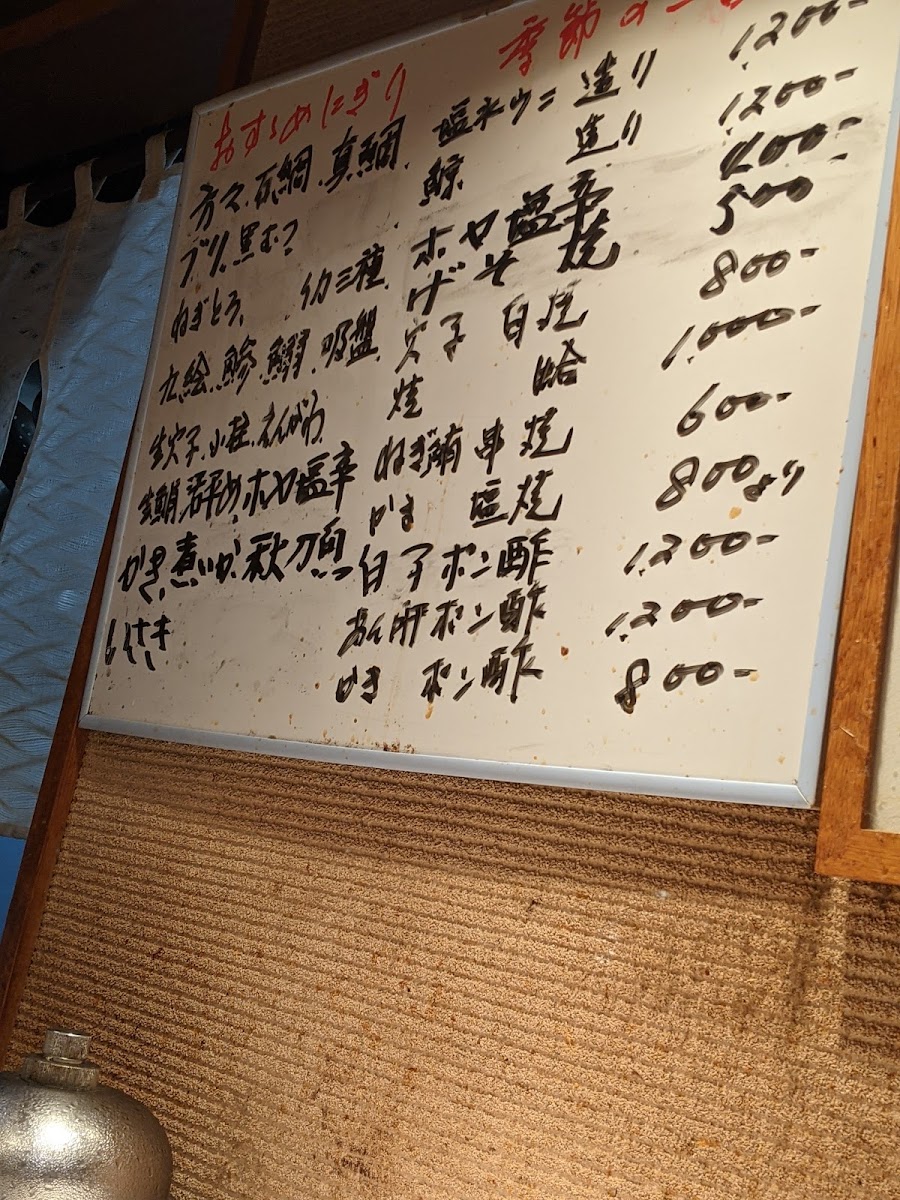 おすすめにぎり
方々.石鯛.真鯛
ブリ.黒むつ
ねぎとろ. イカ三種
九絵.鯵.鰯.吸盤
生穴子.小柱.えんがわ
ホヤ塩辛
かき.煮いか.秋刀魚
季節の
塩水ウニ 造り 1200-
鯨 造り 1200-
ホヤ塩辛 400-
げそ焼 500
穴子 白焼 800-
焼 蛤 1,000-
ねぎ鮪串焼 600-
かま 塩焼 800より
白子ポン酢 1,200-
あん肝ポン酢 1,200-
かき ポン酢 800-